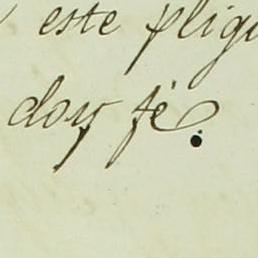 este pligu
doy fé.